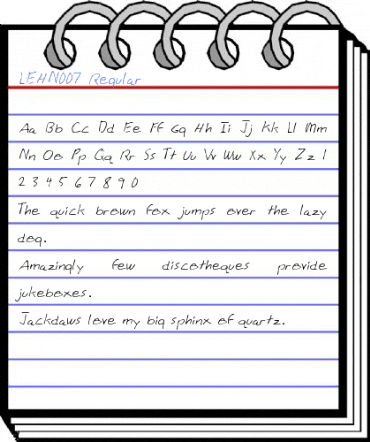 LEHN007 Regular
Aa Bb Cc Dd Ee Ff Gg Hh Ii Jj Kk Ll Mm
Nn Oo Pp Qq Rr Ss Tt Uu Vv Ww Xx Yy Zz 1
2 3 4 5 6 7 8 9 0
The quick brown fox jumps over the lazy
dog.
Amazingly few discotheques provide
jukeboxes.
Jackdaws love my big sphinx of quartz.